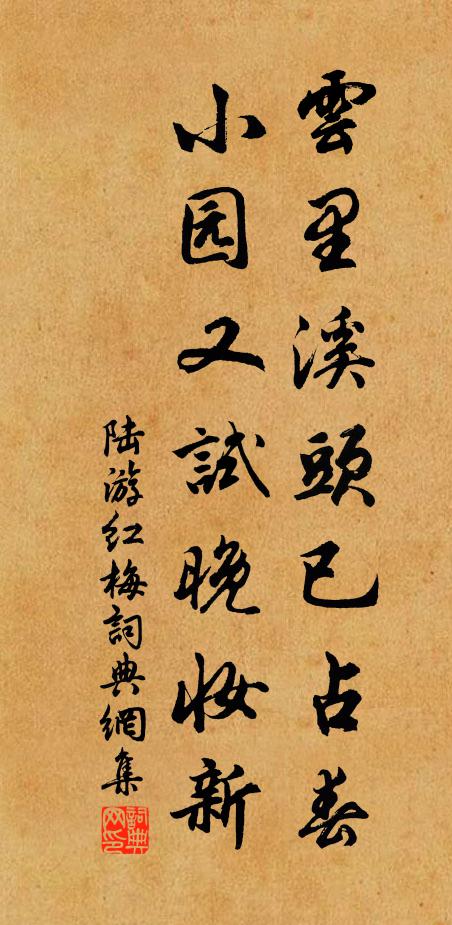 雲里溪頭已占春
小园又試晚妆新
陆游红梅詞典網集
詞典網印